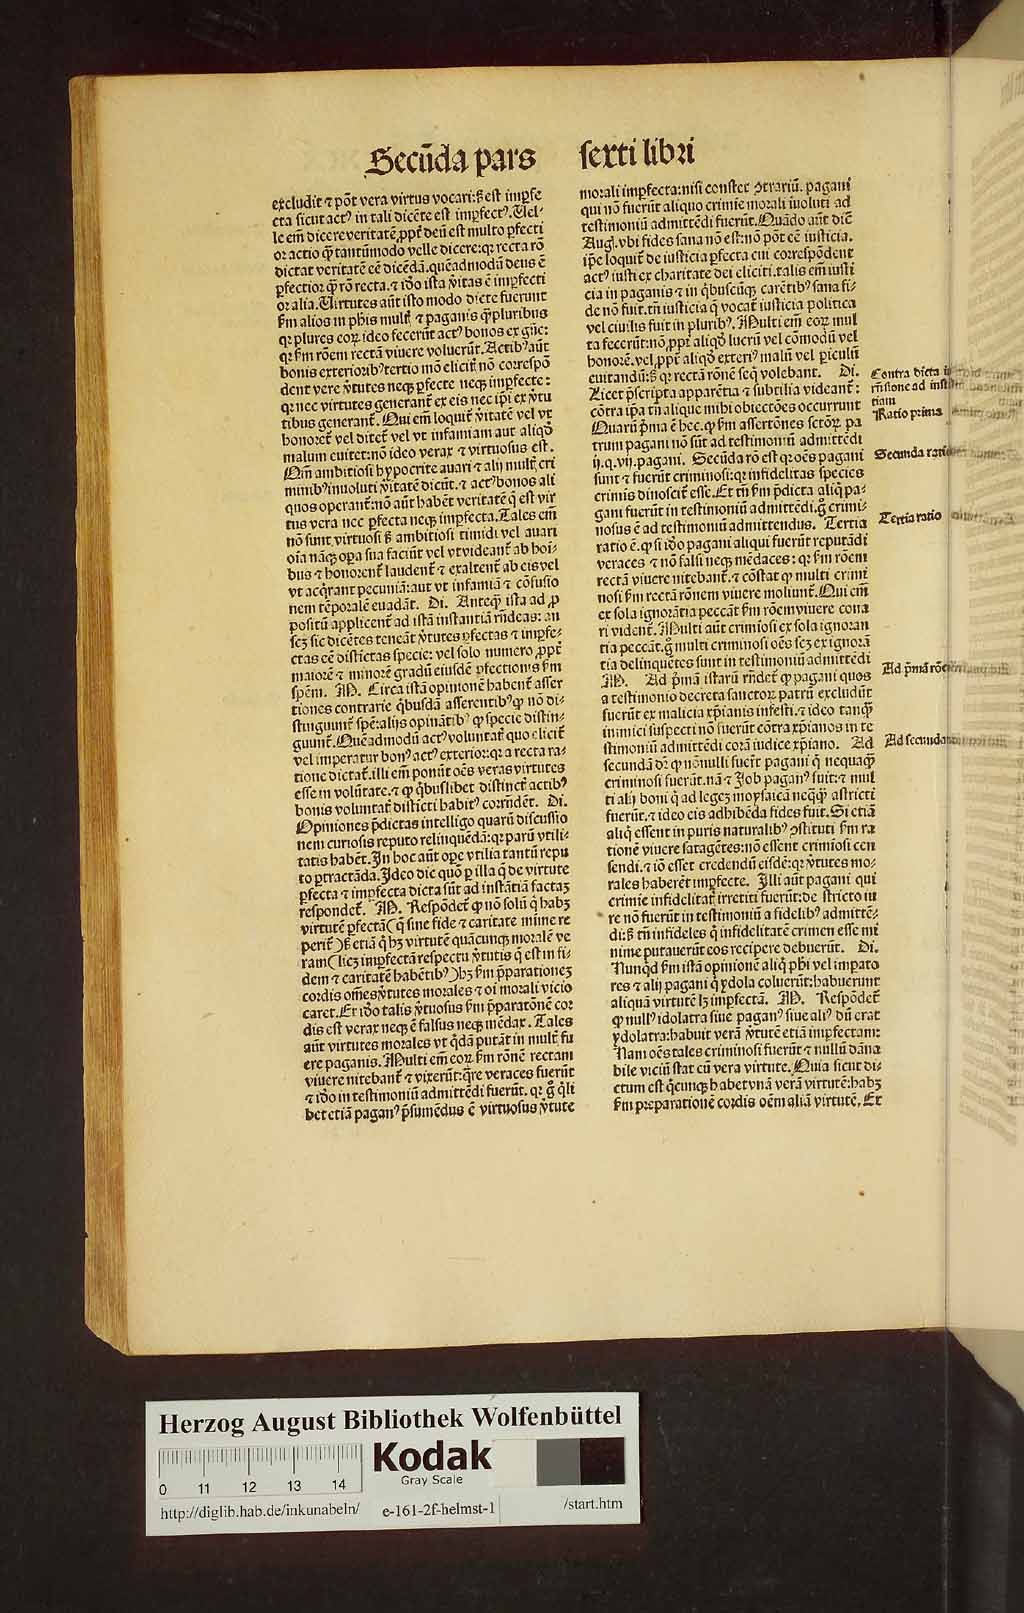 Secūda pars sexti libri
excludit ⁊ pōt vera virtus vocari: sꝫ est imꝑfe
cta sicut actꝰ in tali dicēte est imꝑfectꝰ. Uel-
le em̄ dicere veritatē ꝓpt̄ deū est multo ꝑfecti
or actio ꝙ̄ tantūmodo velle dicere: qꝛ recta rō
dictat veritatē eē dicēdā. quēadmodū deus ē
ꝑfectior ꝙ̄ rō recta. ⁊ iō ista v̄itas ē imꝑfecti
or alia. Uirtutes aūt isto modo dicte fuerunt
ẜm alios in ph̄is mult̄ ⁊ paganis ꝙ̄ pluribus
qꝛ plures eoꝝ ideo fecerūt actꝰ bonos ex gn̄e:
qꝛ ẜm rōem rectā viuere voluerūt. Actibꝰ aūt
bonis exterioribꝰ tertio mō elicit̄ nō correspō
dent vere v̄tutes neqꝫ ꝑfecte neqꝫ imꝑfecte:
qꝛ nec virtutes generant̄ ex eis nec ip̄i ex v̄tu
tibus generant̄. Qui em̄ loquit̄ v̄itatē vel vt
honoret̄ vel ditet̄ vel vt infamiam aut aliqḋ
malum euitet: nō ideo verax ⁊ virtuosus est.
Qm̄ ambitiosi hypocrite auari ⁊ alij mult̄ cri
minibꝰ inuoluti v̄itatē dicūt. ⁊ actꝰ bonos ali
quos operant̄: nō aūt habēt veritatē q̄ est vir
tus vera nec ꝑfecta neqꝫ imꝑfecta. Tales em̄
nō sunt virtuosi sꝫ ambitiosi timidi vel auari
oīa nāqꝫ oꝑa sua faciūt vel vt videant̄ ab hoī-
bus ⁊ honorent̄ laudent̄ ⁊ exaltent̄ ab eis vel
vt acq̄rant pecuniā: aut vt infamiā ⁊ cōfusio
nem tēporalē euadāt. Di. Anteqꝫ ista ad ꝓ
positū applicent̄ ad istā instantiā rn̄deas: an
scꝫ sic dicētes teneāt v̄tutes ꝑfectas ⁊ imꝑfe-
ctas eē distīctas specie: vel solo numero ꝓpt̄
maiorē ⁊ minorē gradū eiusdē ꝑfectionis ẜm
spēm. M. Circa istā opinionē habent̄ asser
tiones contrarie q̄busdā asserentibꝰ ꝙ nō di-
stinguunt̄ spē: alijs opināntibꝰ ꝙ specie distin-
guunt̄. Quēadmodū actꝰ voluntat̄ quo elicit̄
vel imperatur bonꝰ actꝰ exterior: qꝛ a recta ra-
tione dictat̄. illi em̄ ponūt oēs veras virtutes
esse in volūtate. ⁊ ꝙ q̄buslibet distinct̄ actibꝰ
bonis voluntat̄ distīcti habitꝰ corrn̄dēt. Di.
Opiniones p̄dictas intelligo quarū discussio
nem curiosis reputo relinquēdā: qꝛ parū vtili-
tatis habēt. In hoc aūt oꝑe vtilia tantū repu
to ꝑtractāda. Ideo dic quō ꝑ illa q̄ de virtute
ꝑfecta ⁊ imꝑfecta dicta sūt ad instātiā factaꝫ
respondet̄. M. Respōdet̄ ꝙ nō solū q̄ habꝫ
virtutē ꝑfectā (q̄ sine fide ⁊ caritate mīme re
perit̄) sꝫ etiā q̄ hꝫ virtutē quācunqꝫ moralē ve
ram (licꝫ imꝑfectā respectu v̄tutis q̄ est in fi-
dem ⁊ caritatē habētibꝰ) hꝫ ẜm p̄parationeꝫ
cordis om̄es v̄tutes morales ⁊ oī morali vicio
caret. Et iō talis v̄tuosus ẜm p̄paratōnē cor
dis est verax neqꝫ ē falsus neqꝫ mēdax. Tales
aūt virtutes morales vt q̄dā putāt in mult̄ fu
ere paganis. Multi em̄ eoꝝ ẜm rōnē rectam
viuere nitebant̄ ⁊ vixerūt: q̄re veraces fuerūt
⁊ iō in testimoniū admittēdi fuerūt. qꝛ ḡ q̄li
bet etiā paganꝰ p̄sumēdus ē virtuosus v̄tute
morali imꝑfecta: nisi constet ꝯtrariū. pagani
qui nō fuerūt aliquo crimīe morali īuoluti ad
testimoniū admittēdi fuerūt. Quādo aūt dic̄
Aug. vbi fides sana nō est: nō pōt eē iusticia.
ip̄e loquit̄ de iusticia ꝑfecta cui correspōdent
actꝰ iusti ex charitate dei eliciti. talis em̄ iusti
cia in paganis ⁊ in q̄buscūqꝫ carētibꝰ sana fi-
de nō fuit. tn̄ iusticia q̄ vocat̄ iusticia politica
vel ciuilis fuit in pluribꝰ. Multi em̄ eoꝝ mul
ta fecerūt: nō ꝓpt̄ aliqḋ lucrū vel cōmodū vel
honorē. vel ꝓpt̄ aliqḋ exteriꝰ malū vel ꝑiculū
euitandū: sꝫ qꝛ rectā rōnē seq̄ volebant. Di.
Licet p̄scripta apparētia ⁊ subtilia videant̄:
cōtra ip̄a tn̄ alique mihi obiectōes occurrunt
Quarū p̄ma ē hec. ꝙ ẜm assertōnes sctōꝝ pa
trum pagani nō sūt ad testimoniū admittēdi
ij. q. vij. pagani. Secūda rō est qꝛ oēs pagani
sunt ⁊ fuerūt criminosi: qꝛ infidelitas species
crimīs dinoscit̄ esse. Et tn̄ ẜm p̄dicta aliq̄ pa-
gani fuerūt in testimoniū admittēdi. ḡ crimi-
nosus ē ad testimoniū admittendus. Tertia
ratio ē. ꝙ si iō pagani aliqui fuerūt reputādi
veraces ⁊ nō falsi neqꝫ mēdaces: qꝛ ẜm rōem
rectā viuere nitebant̄. ⁊ cōstat ꝙ multi crimi
nosi ẜm rectā rōnem viuere moliunt̄. Qui em̄
ex sola ignorātia peccāt ẜm rōem viuere cona
ri vident̄. Multi aūt crimīosi ex sola ignoran
tia peccāt. ḡ multi criminosi oēs scꝫ ex ignorā
tia delinquētes sunt in testimoniū admittēdi
M. Ad p̄mā istarū rn̄det̄ ꝙ pagani quos
a testimonio decreta sanctoꝝ patrū excludūt
fuerūt ex malicia xp̄ianis infesti. ⁊ ideo tanqꝫ
inimici suspecti nō fuerūt cōtra xp̄ianos in te
stimoniū admittēdi corā iudice xp̄iano. Ad
secundā dr̄ ꝙ nōnulli fuer̄t pagani q̄ nequaqꝫ
criminosi fuerāt. nā ⁊ Job paganꝰ fuit: ⁊ mul
ti alij boni q̄ ad legeꝫ moysaicā neq̄qꝫ astricti
fuerūt. ⁊ ideo eis adhibēda fides fuit. Si etiā
aliq̄ essent in puris naturalibꝰ ꝯstituti ẜm ra
tionē viuere satagētes: nō essent crimīosi cen
sendi. ⁊ iō esset credendū eisdē: qꝛ v̄tutes mo-
rales haberēt imꝑfecte. Illi aūt pagani qui
crimīe infidelitat̄ irretiti fuerūt: de stricto iu
re nō fuerūt in testimoniū a fidelibꝰ admittē-
di: sꝫ tn̄ infideles q̄ infidelitatē crimen esse mi
nime putauerūt eos recipere debuerūt. Di.
Nunq̄d ẜm istā opinionē aliq̄ ph̄i vel impato
res ⁊ alij pagani q̄ ydola coluerūt: habuerunt
aliquā virtutē lꝫ imꝑfectā. M. Respōdet̄
ꝙ nullꝰ idolatra siue paganꝰ siue aliꝰ dū erat
ydolatra: habuit verā v̄tutē etiā imꝑfectam:
Nam oēs tales criminosi fuerūt ⁊ nullū dāna
bile viciū stat cū vera virtute. Quia sicut di-
ctum est q̄cunqꝫ habet vnā verā virtutē: habꝫ
ẜm preparationē cordis oēm aliā virtutē. Et
Contra dicta
rn̄sione ad
tiam
Ratio prima
Secunda ratio
Tertia ratio
Ad p̄mā
Ad secundā
Herzog August Bibliothek Wolfenbüttel
0 11 12 13 14
Kodak
Gray Scale
http://diglib.hab.de/inkunabeln/ e-161-2f-helmst-1 /start.htm